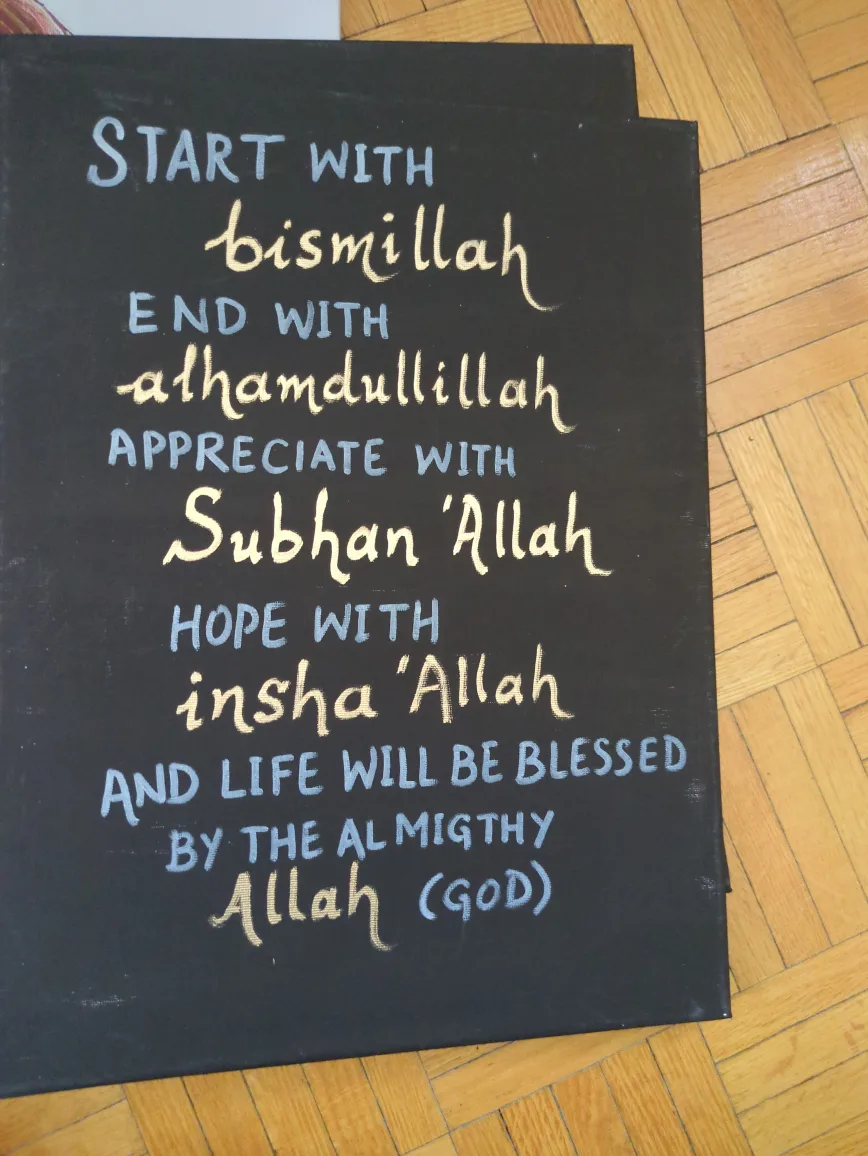 START WITH
bismillah
END WITH
alhamdullillah
APPRECIATE WITH
Subhan 'Allah
HOPE WITH
insha 'Allah
AND LIFE WILL BE BLESSED
BY THE ALMIGTHY
Allah (GOD)